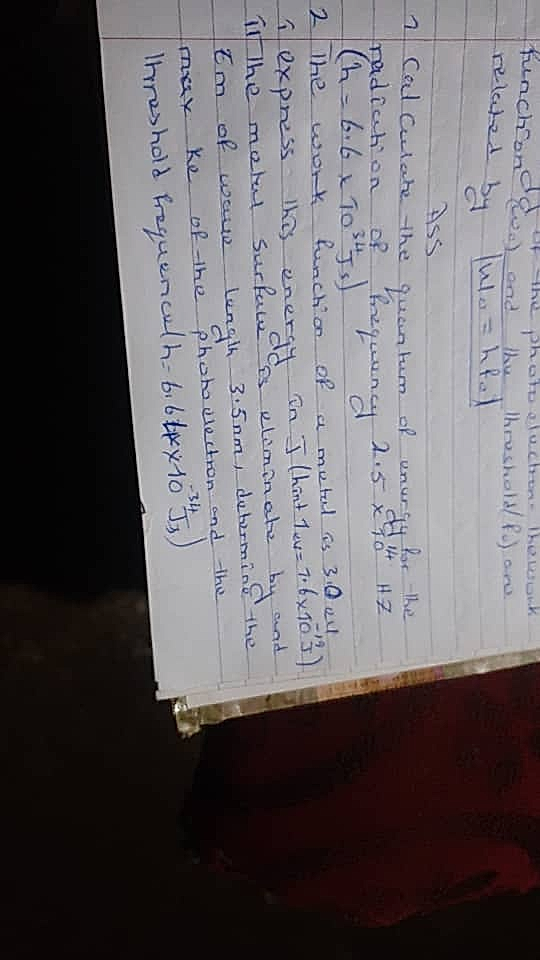 function of the photoelectron. the work
(w₀) and the threshold (f₀) are
related by W₀ = hf₀
Ass
1 calculate the quantum of energy for the
radiation of frequency 2.5 x 10¹⁴ HZ
(h = 6.6 x 10³⁴Js)
2 The work function of a metal is 3.0 eV
i express this energy in J (hint 1ev = 1.6x10⁻¹⁹J)
ii The metal surface is eliminate by and
Em of wave length 3.5nm, determine the
max ke of the photoelectron and the
threshold frequence (h = 6.6 x 10⁻³⁴Js)